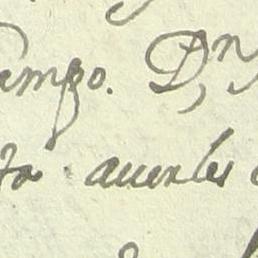 empo. Dn
ta auerles